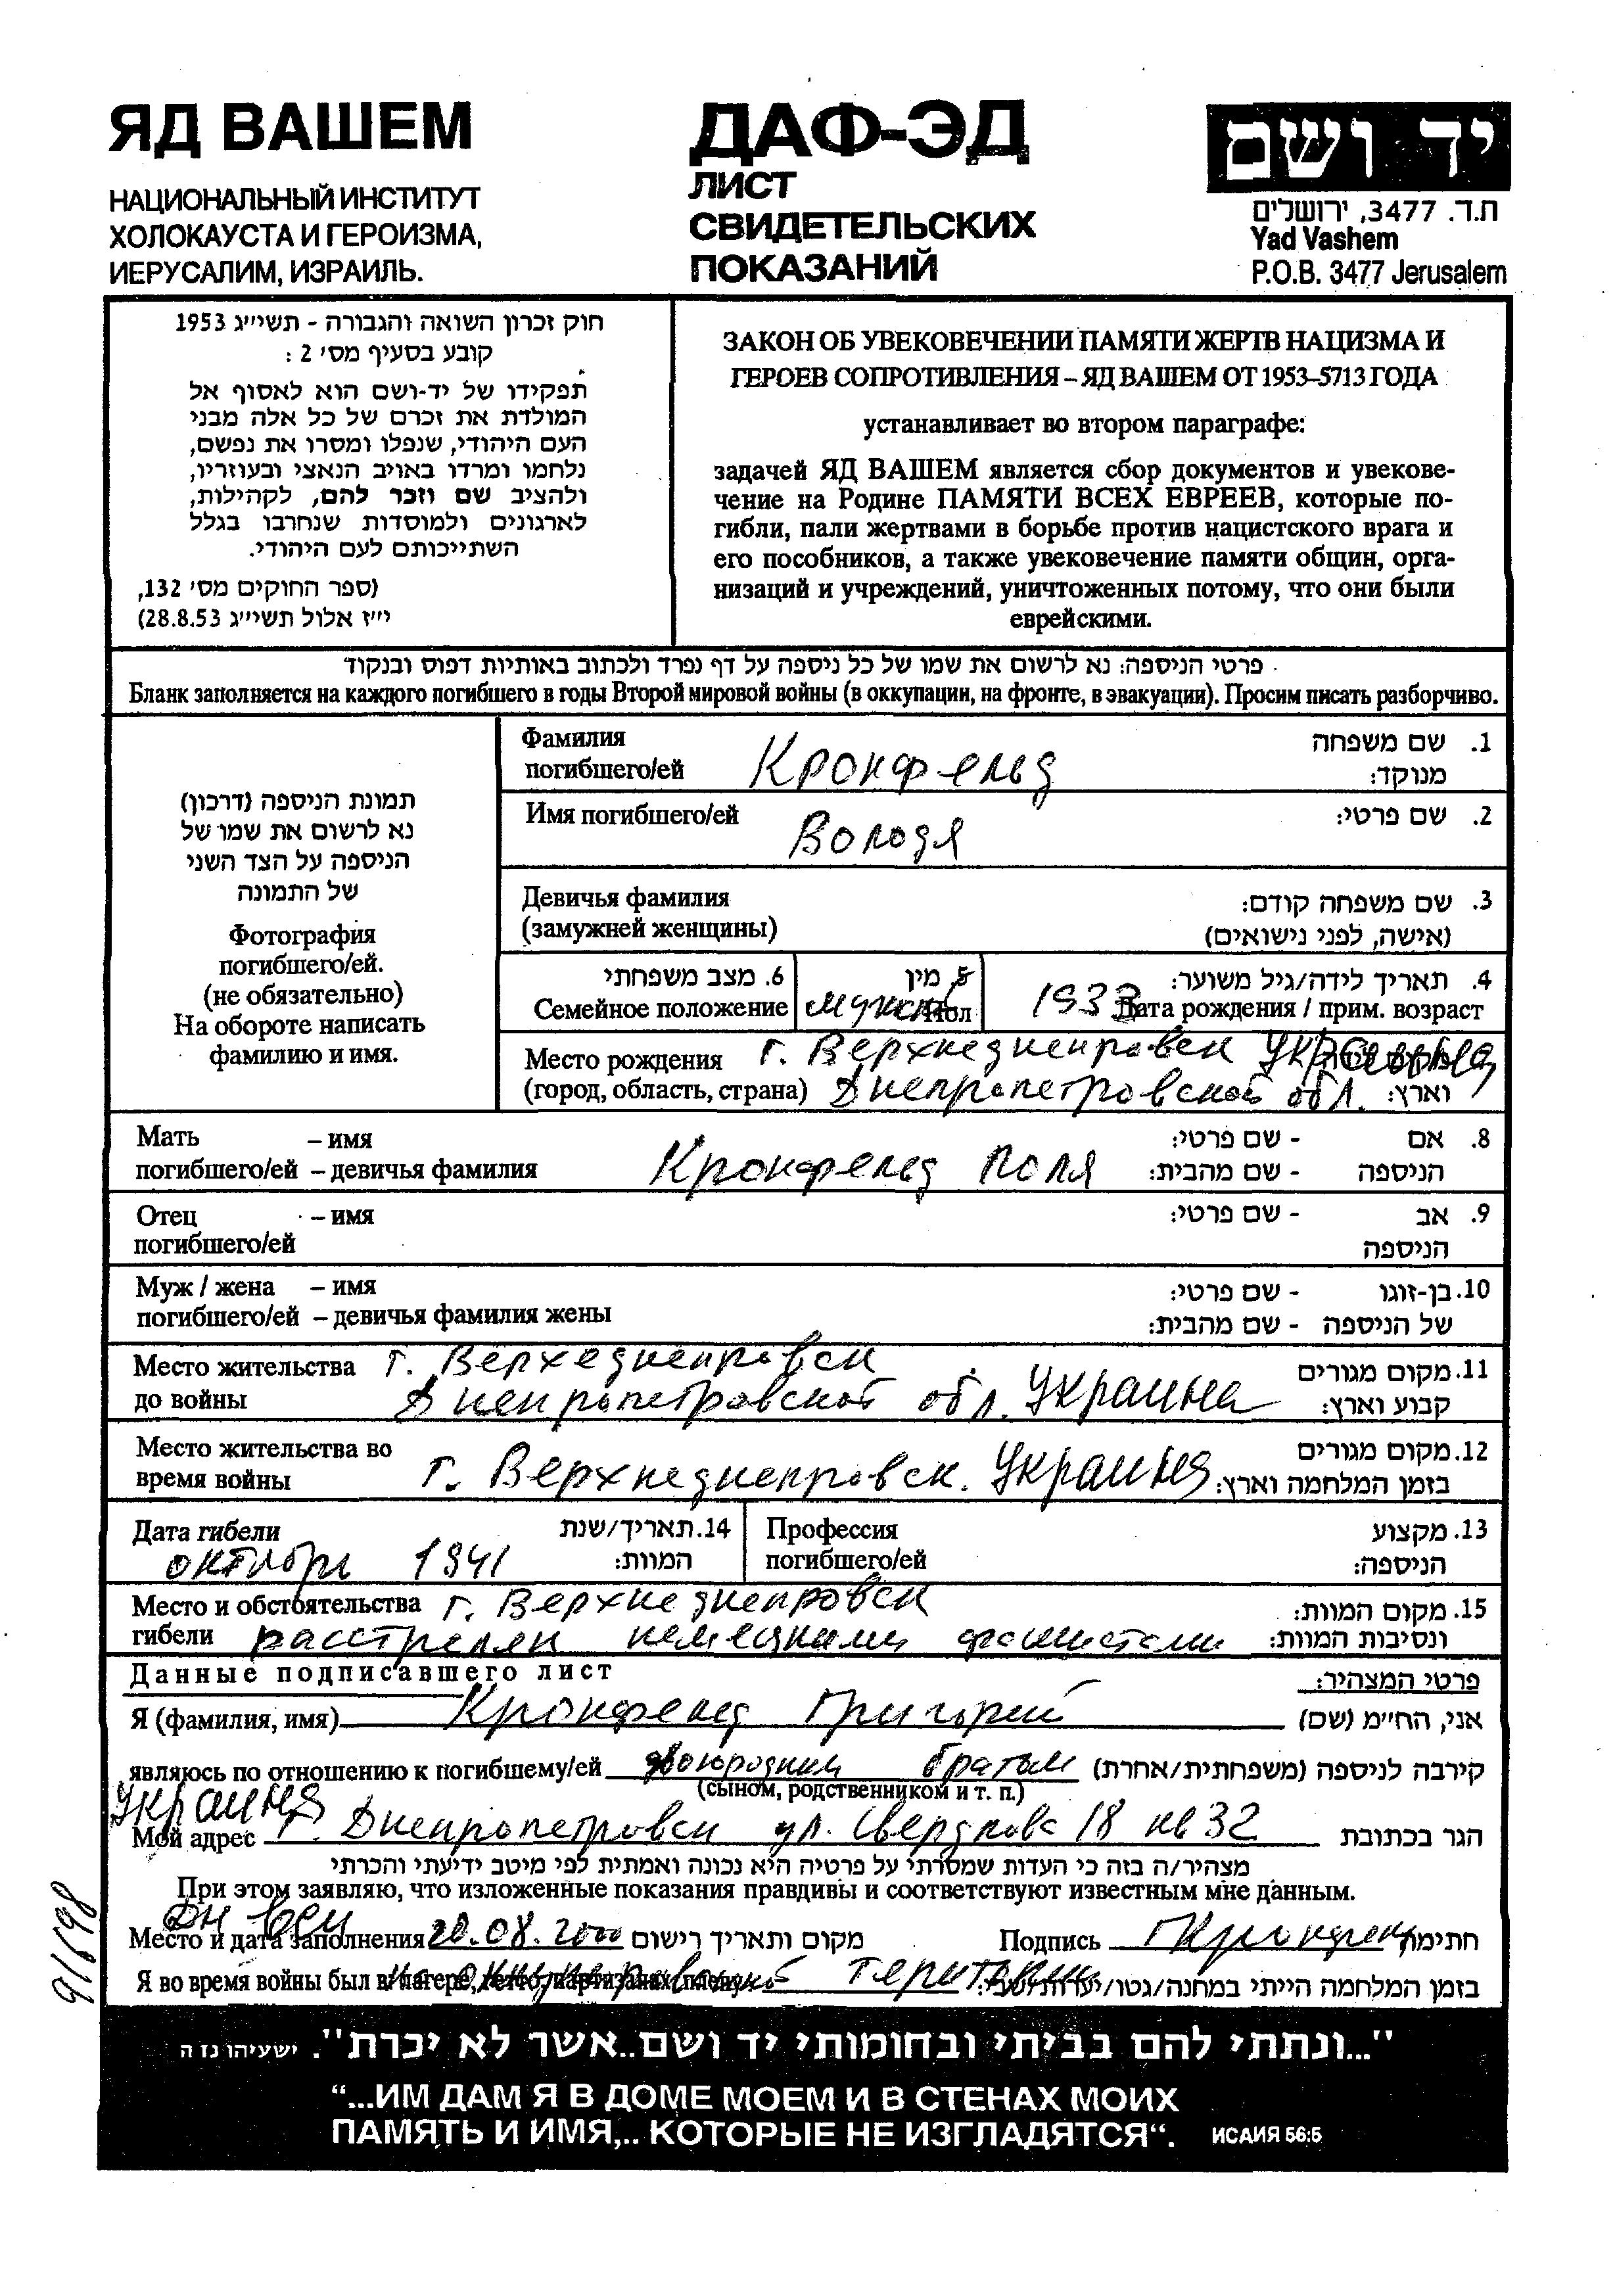 ЯД ВАШЕМ
НАЦИОНАЛЬНЫЙ ИНСТИТУТ
ХОЛОКАУСТА И ГЕРОИЗМА,
ИЕРУСАЛИМ, ИЗРАИЛЬ.
ДАФ-ЭД
ЛИСТ
СВИДЕТЕЛЬСКИХ
ПОКАЗАНИЙ
יד ושם
ת.ד. 3477, ירושלים
Yad Vashem
P.O.B. 3477 Jerusalem
חוק זכרון השואה והגבורה - תשי״ג 1953
קובע בסעיף מס׳ 2 :
תפקידו של יד-ושם הוא לאסוף אל
המולדת את זכרם של כל אלה מבני
העם היהודי, שנפלו ומסרו את נפשם,
נלחמו ומרדו באויב הנאצי ובעוזריו,
ולהציב שם וזכר להם, לקהילות,
לארגונים ולמוסדות שנחרבו בגלל
השתייכותם לעם היהודי.
(ספר החוקים מס׳ 132,
י״ז אלול תשי״ג 28.8.53)
ЗАКОН ОБ УВЕКОВЕЧЕНИИ ПАМЯТИ ЖЕРТВ НАЦИЗМА И
ГЕРОЕВ СОПРОТИВЛЕНИЯ – ЯД ВАШЕМ ОТ 1953–5713 ГОДА
устанавливает во втором параграфе:
задачей ЯД ВАШЕМ является сбор документов и увекове-
чение на Родине ПАМЯТИ ВСЕХ ЕВРЕЕВ, которые по-
гибли, пали жертвами в борьбе против нацистского врага и
его пособников, а также увековечение памяти общин, орга-
низаций и учреждений, уничтоженных потому, что они были
еврейскими.
פרטי הניספה: נא לרשום את שמו של כל ניספה על דף נפרד ולכתוב באותיות דפוס ובנקוד
Бланк заполняется на каждого погибшего в годы Второй мировой войны (в оккупации, на фронте, в эвакуации). Просим писать разборчиво.
תמונת הניספה (דרכון)
נא לרשום את שמו של
הניספה על הצד השני
של התמונה
Фотография
погибшего/ей.
(не обязательно)
На обороте написать
фамилию и имя.
Фамилия 1. שם משפחה
погибшего/ей Кронфельд מנוקד:
Имя погибшего/ей Володя 2. שם פרטי:
Девичья фамилия 3. שם משפחה קודם:
(замужней женщины) (אישה, לפני נישואים)
6. מצב משפחתי 5. מין 4. תאריך לידה/גיל משוער:
Семейное положение мужской Пол 1933 Дата рождения / прим. возраст
Место рождения г. Верхнеднепровск Украина
(город, область, страна) Днепропетровской обл. וארץ:
Мать – имя 8. אם - שם פרטי:
погибшего/ей – девичья фамилия Кронфельд Поля הניספה - שם מהבית:
Отец – имя 9. אב - שם פרטי:
погибшего/ей הניספה
Муж / жена – имя 10. בן-זוגו - שם פרטי:
погибшего/ей – девичья фамилия жены של הניספה - שם מהבית:
Место жительства г. Верхеднепровск 11. מקום מגורים
до войны Днепропетровской обл. Украина קבוע וארץ:
Место жительства во 12. מקום מגורים
время войны г. Верхнеднепровск. Украина בזמן המלחמה וארץ:
Дата гибели 14. תאריך/שנת Профессия 13. מקצוע
октябрь 1941 המוות: погибшего/ей הניספה:
Место и обстоятельства г. Верхнеднепровск 15. מקום המוות:
гибели расстрелян немецкими фашистами ונסיבות המוות:
Данные подписавшего лист פרטי המצהיר:
Я (фамилия, имя) Кронфельд Григорий אני, הח״מ (שם)
являюсь по отношению к погибшему/ей двоюродным братом קירבה לניספה (משפחתית/אחרת)
(сыном, родственником и т. п.)
Украина
Мой адрес г. Днепропетровск ул. Свердлова 18 кв 32 הגר בכתובת
מצהיר/ה בזה כי העדות שמסרתי על פרטיה היא נכונה ואמתית לפי מיטב ידיעתי והכרתי
При этом заявляю, что изложенные показания правдивы и соответствуют известным мне данным.
Место и дата заполнения 20.08.2000 מקום ותאריך רישום Подпись ГКронфельд חתימה
Я во время войны был в лагере, гетто, партизанах, плену בזמן המלחמה הייתי במחנה/גטו/יערות/שבי:
91698
"...ונתתי להם בביתי ובחומותי יד ושם..אשר לא יכרת". ישעיהו נז ה
“...ИМ ДАМ Я В ДОМЕ МОЕМ И В СТЕНАХ МОИХ
ПАМЯТЬ И ИМЯ,.. КОТОРЫЕ НЕ ИЗГЛАДЯТСЯ“. ИСАИЯ 56:5